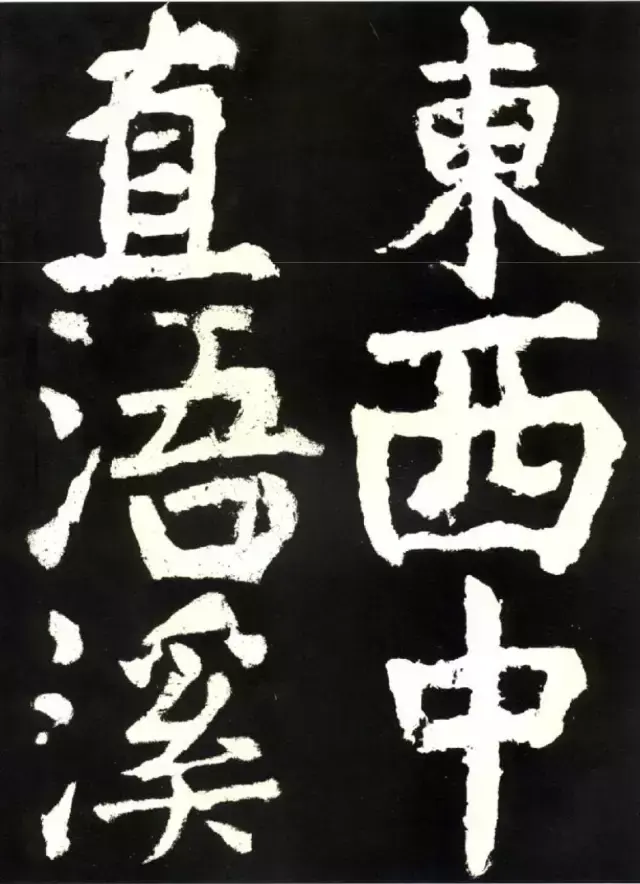 東西中
直浯溪